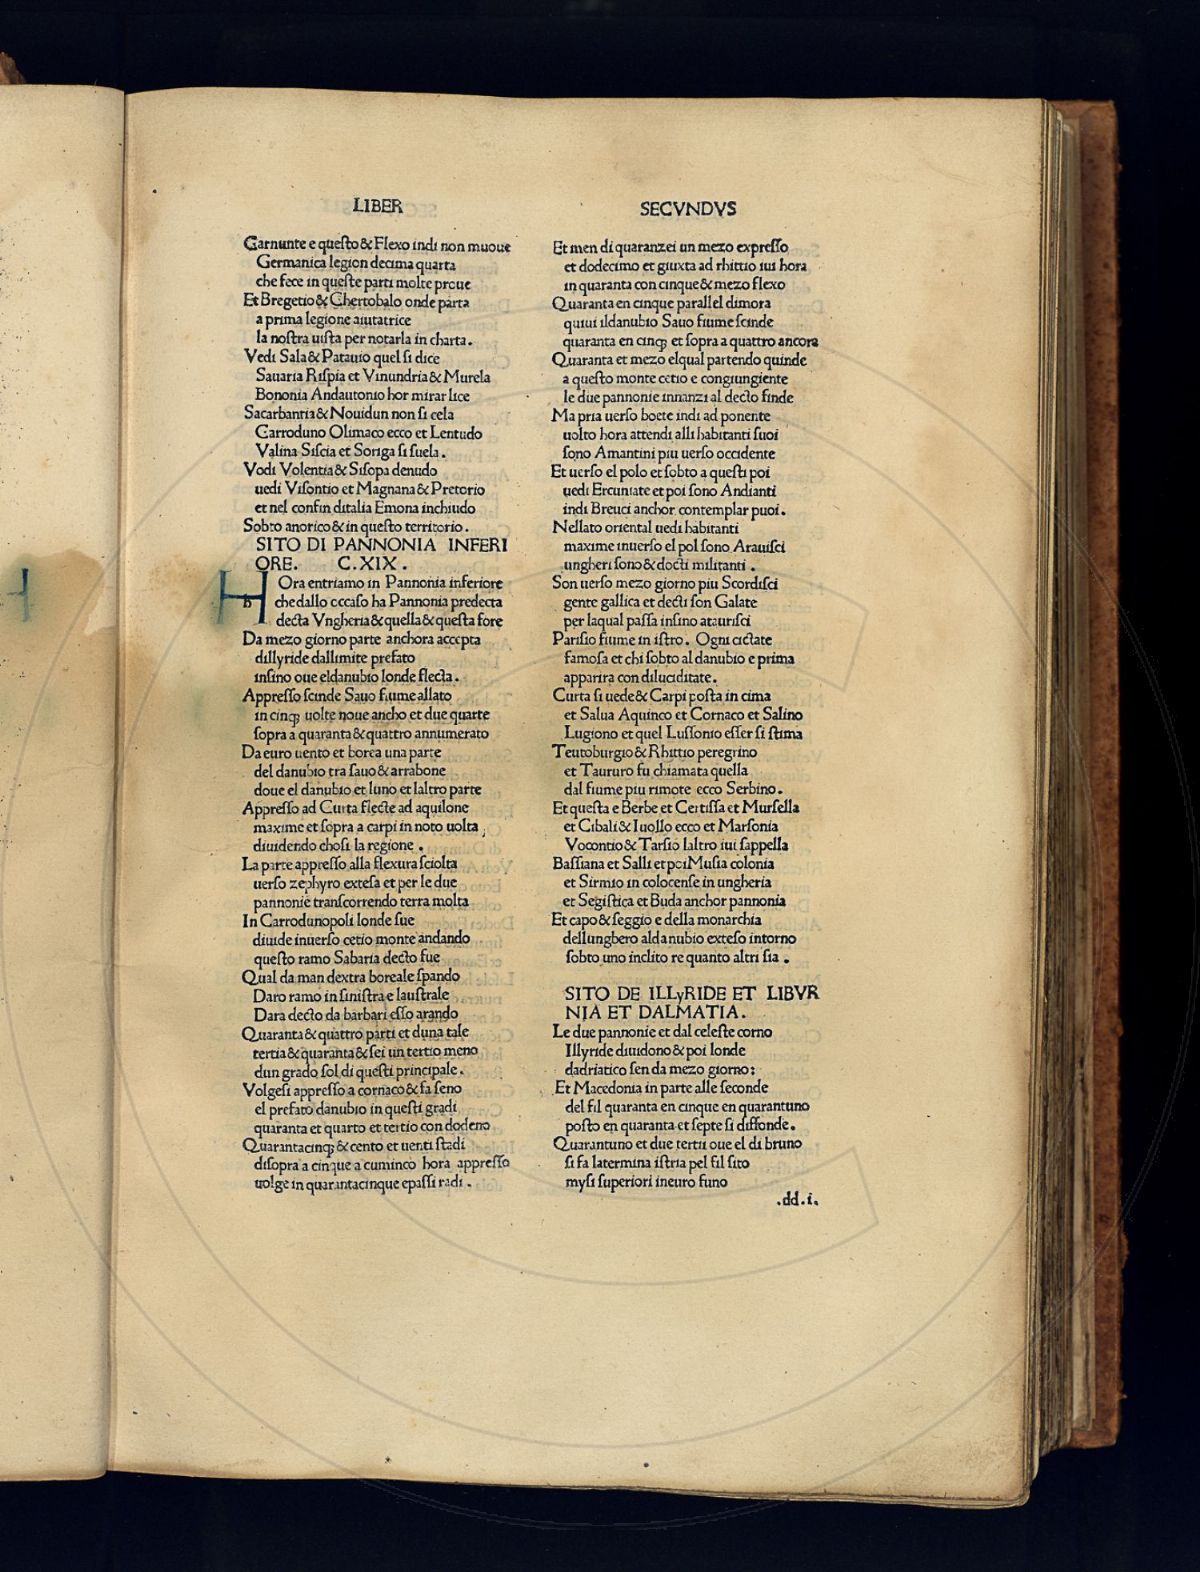 LIBER
Carnunte e questo & Flexo indi non muoue
Germanica legion decima quarta
che fece in queste parti molte proue
Et Bregetio & Chertobalo onde parta
a prima legione aiutatrice
la nostra uista per notarla in charta.
Vedi Sala & Patauio quel si dice
Sauaria Rispia et Vinundria & Murela
Bononia Andautonio hor mirar lice
Sacarbantia & Nouidun non si cela
Carroduno Olimaco ecco et Lentudo
Valina Siscia et Soriga si suela.
Vodi Volentia & Sisopa denudo
uedi Visontio et Magnana & Pretorio
et nel confin ditalia Emona inchiudo
Sobto anorico & in questo territorio.
SITO DI PANNONIA INFERI
ORE. C.XIX.
H Ora entriamo in Pannonia inferiore
h che dallo occaso ha Pannonia predecta
decta Vngheria & quella & questa fore
Da mezo giorno parte anchora accepta
dillyride dallimite prefato
insino oue eldanubio londe flecta.
Appresso scinde Sauo fiume allato
in cinq; uolte noue ancho et due quarte
sopra a quaranta & quattro annumerato
Da euro uento et borea una parte
del danubio tra sauo & arrabone
doue el danubio et luno et laltro parte
Appresso ad Curta flecte ad aquilone
maxime et sopra a carpi in noto uolta
diuidendo chosi la regione.
La parte appresso alla flexura sciolta
uerso zephyro extesa et per le due
pannonie transcorrendo terra molta
In Carrodunopoli londe sue
diuide inuerso cetio monte andando
questo ramo Sabaria decto fue
Qual da man dextra boreale spando
Daro ramo in sinistra e laustrale
Dara decto da barbari esso arando
Quaranta & quattro parti et duna tale
tertia & quaranta & sei un tertio meno
dun grado sol di questi principale.
Volgesi appresso a cornaco & fa seno
el prefato danubio in questi gradi
quaranta et quarto et tertio con dodeno
Quarantacinq; & cento et uenti stadi
disopra a cinque a cuminco hora appresso
uolge in quarantacinque epassi radi.
SECVNDVS
Et men di quaranzei un mezo expresso
et dodecimo et giuxta ad rhittio iui hora
in quaranta con cinque & mezo flexo
Quaranta en cinque parallel dimora
quiui ildanubio Sauo fiume scinde
quaranta en cinq; et sopra a quattro ancora
Quaranta et mezo elqual partendo quinde
a questo monte cetio e congiungiente
le due pannonie innanzi al decto finde
Ma pria uerso boete indi ad ponente
uolto hora attendi alli habitanti suoi
sono Amantini piu uerso occidente
Et uerso el polo et sobto a questi poi
uedi Ercuniate et poi sono Andianti
indi Breuci anchor contemplar puoi.
Nellato oriental uedi habitanti
maxime inuerso el pol sono Arauisci
ungheri sono & docti militanti.
Son uerso mezo giorno piu Scordisci
gente gallica et decti son Galate
per laqual passa insino ataurisci
Parisio fiume in istro. Ogni cictate
famosa et chi sobto al danubio e prima
apparira con diluciditate.
Curta si uede & Carpi posta in cima
et Salua Aquinco et Cornaco et Salino
Lugiono et quel Lussonio esser si stima
Teutoburgio & Rhittio peregrino
et Taururo fu chiamata quella
dal fiume piu rimote ecco Serbino.
Et questa e Berbe et Certissa et Mursella
et Cibali & Iuollo ecco et Marsonia
Vocontio & Tarsio laltro iui sappella
Bassiana et Salli et poi Musia colonia
et Sirmio in colocense in ungheria
et Segistica et Buda anchor pannonia
Et capo & seggio e della monarchia
dellunghero aldanubio exteso intorno
sobto uno inclito re quanto altri sia.
SITO DE ILLyRIDE ET LIBVR
NIA ET DALMATIA.
Le due pannonie et dal celeste corno
Illyride diuidono & poi londe
dadriatico sen da mezo giorno:
Et Macedonia in parte alle seconde
del fil quaranta en cinque en quarantuno
posto en quaranta et septe si diffonde.
Quarantuno et due tertii oue el di bruno
si fa latermina istria pel fil sito
mysi superiori ineuro funo
.dd.i.